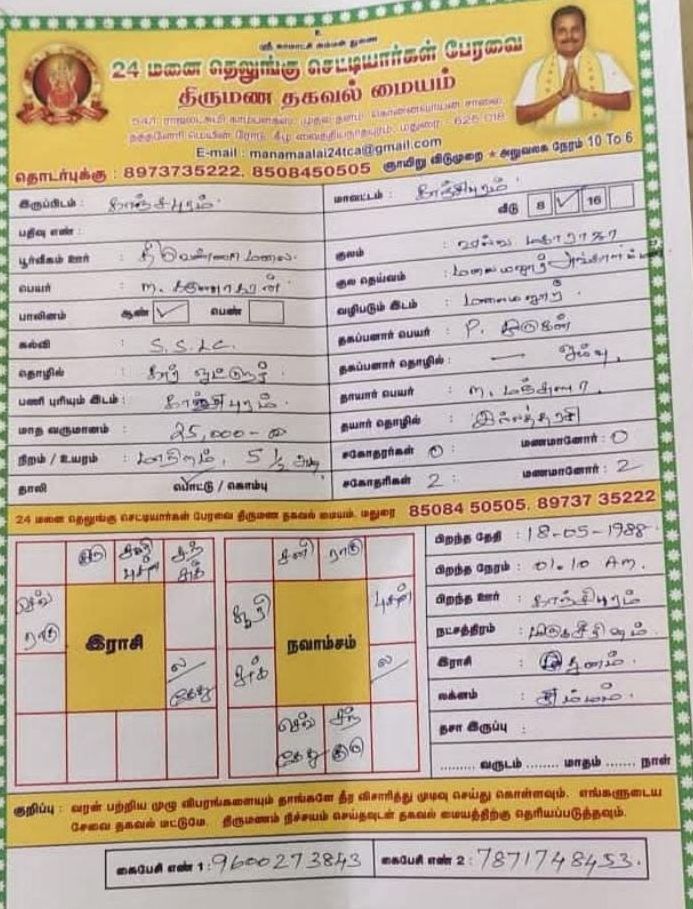 உ
ஸ்ரீ காமாட்சி அம்மன் துணை
24 மனை தெலுங்கு செட்டியார்கள் பேரவை
திருமண தகவல் மையம்
54/1, ராஜலட்சுமி காம்பளக்ஸ், முதல் தளம், கொன்னவாயன் சாலை,
தத்தனேரி மெயின் ரோடு, கீழ வைத்தியநாதபுரம், மதுரை - 625 018.
E-mail : manamaalai24tca@gmail.com
தொடர்புக்கு : 8973735222, 8508450505 ஞாயிறு விடுமுறை ★ அலுவலக நேரம் 10 To 6
இருப்பிடம் : காஞ்சிபுரம்.
மாவட்டம் : காஞ்சிபுரம்.
வீடு 8 ✓ 16
பதிவு எண் :
பூர்வீகம் ஊர் :
குலம் :
பெயர் :
குல தெய்வம் : மலைமனூர்
பாலினம் ஆண் ✓ பெண்
வழிபடும் இடம் : மலைமனூர்
கல்வி : S.S.L.C.
தகப்பனார் பெயர் : P.
தொழில் : கார் ஓட்டுநர்
தகப்பனார் தொழில் : — ஓய்வு.
பணி புரியும் இடம் : காஞ்சிபுரம்.
தாயார் பெயர் : M. மஞ்சுளா
மாத வருமானம் : 25,000-00
தயார் தொழில் : இல்லத்தரசி
நிறம் / உயரம் : மாநிறம், 5 ½ அடி
சகோதரர்கள் 0 : மணமானோர் : 0
தாலி பொட்டு / கொம்பு
சகோதரிகள் 2 : மணமானோர் : 2
24 மனை தெலுங்கு செட்டியார்கள் பேரவை திருமண தகவல் மையம். மதுரை 85084 50505, 89737 35222
குரு சூரி புதன் சந் சுக்
செவ் ராகு
இராசி
ல/ கேது
சனி ராகு
சூரி புதன்
நவாம்சம்
சுக் ல/
செவ் கேது சந் குரு
பிறந்த தேதி : 18-05-1988.
பிறந்த நேரம் : 01.10 AM.
பிறந்த ஊர் : காஞ்சிபுரம்
நட்சத்திரம் : மிருகசீரிஷம்.
இராசி : மிதுனம்.
லக்னம் :
தசா இருப்பு :
......... வருடம் ........ மாதம் ........ நாள்
குறிப்பு : வரன் பற்றிய முழு விபரங்களையும் தாங்களே தீர விசாரித்து முடிவு செய்து கொள்ளவும். எங்களுடைய
சேவை தகவல் மட்டுமே. திருமணம் நிச்சயம் செய்தவுடன் தகவல் மையத்திற்கு தெரியப்படுத்தவும்.
கைபேசி எண் 1 : 9600273843 கைபேசி எண் 2 : 7871748453.